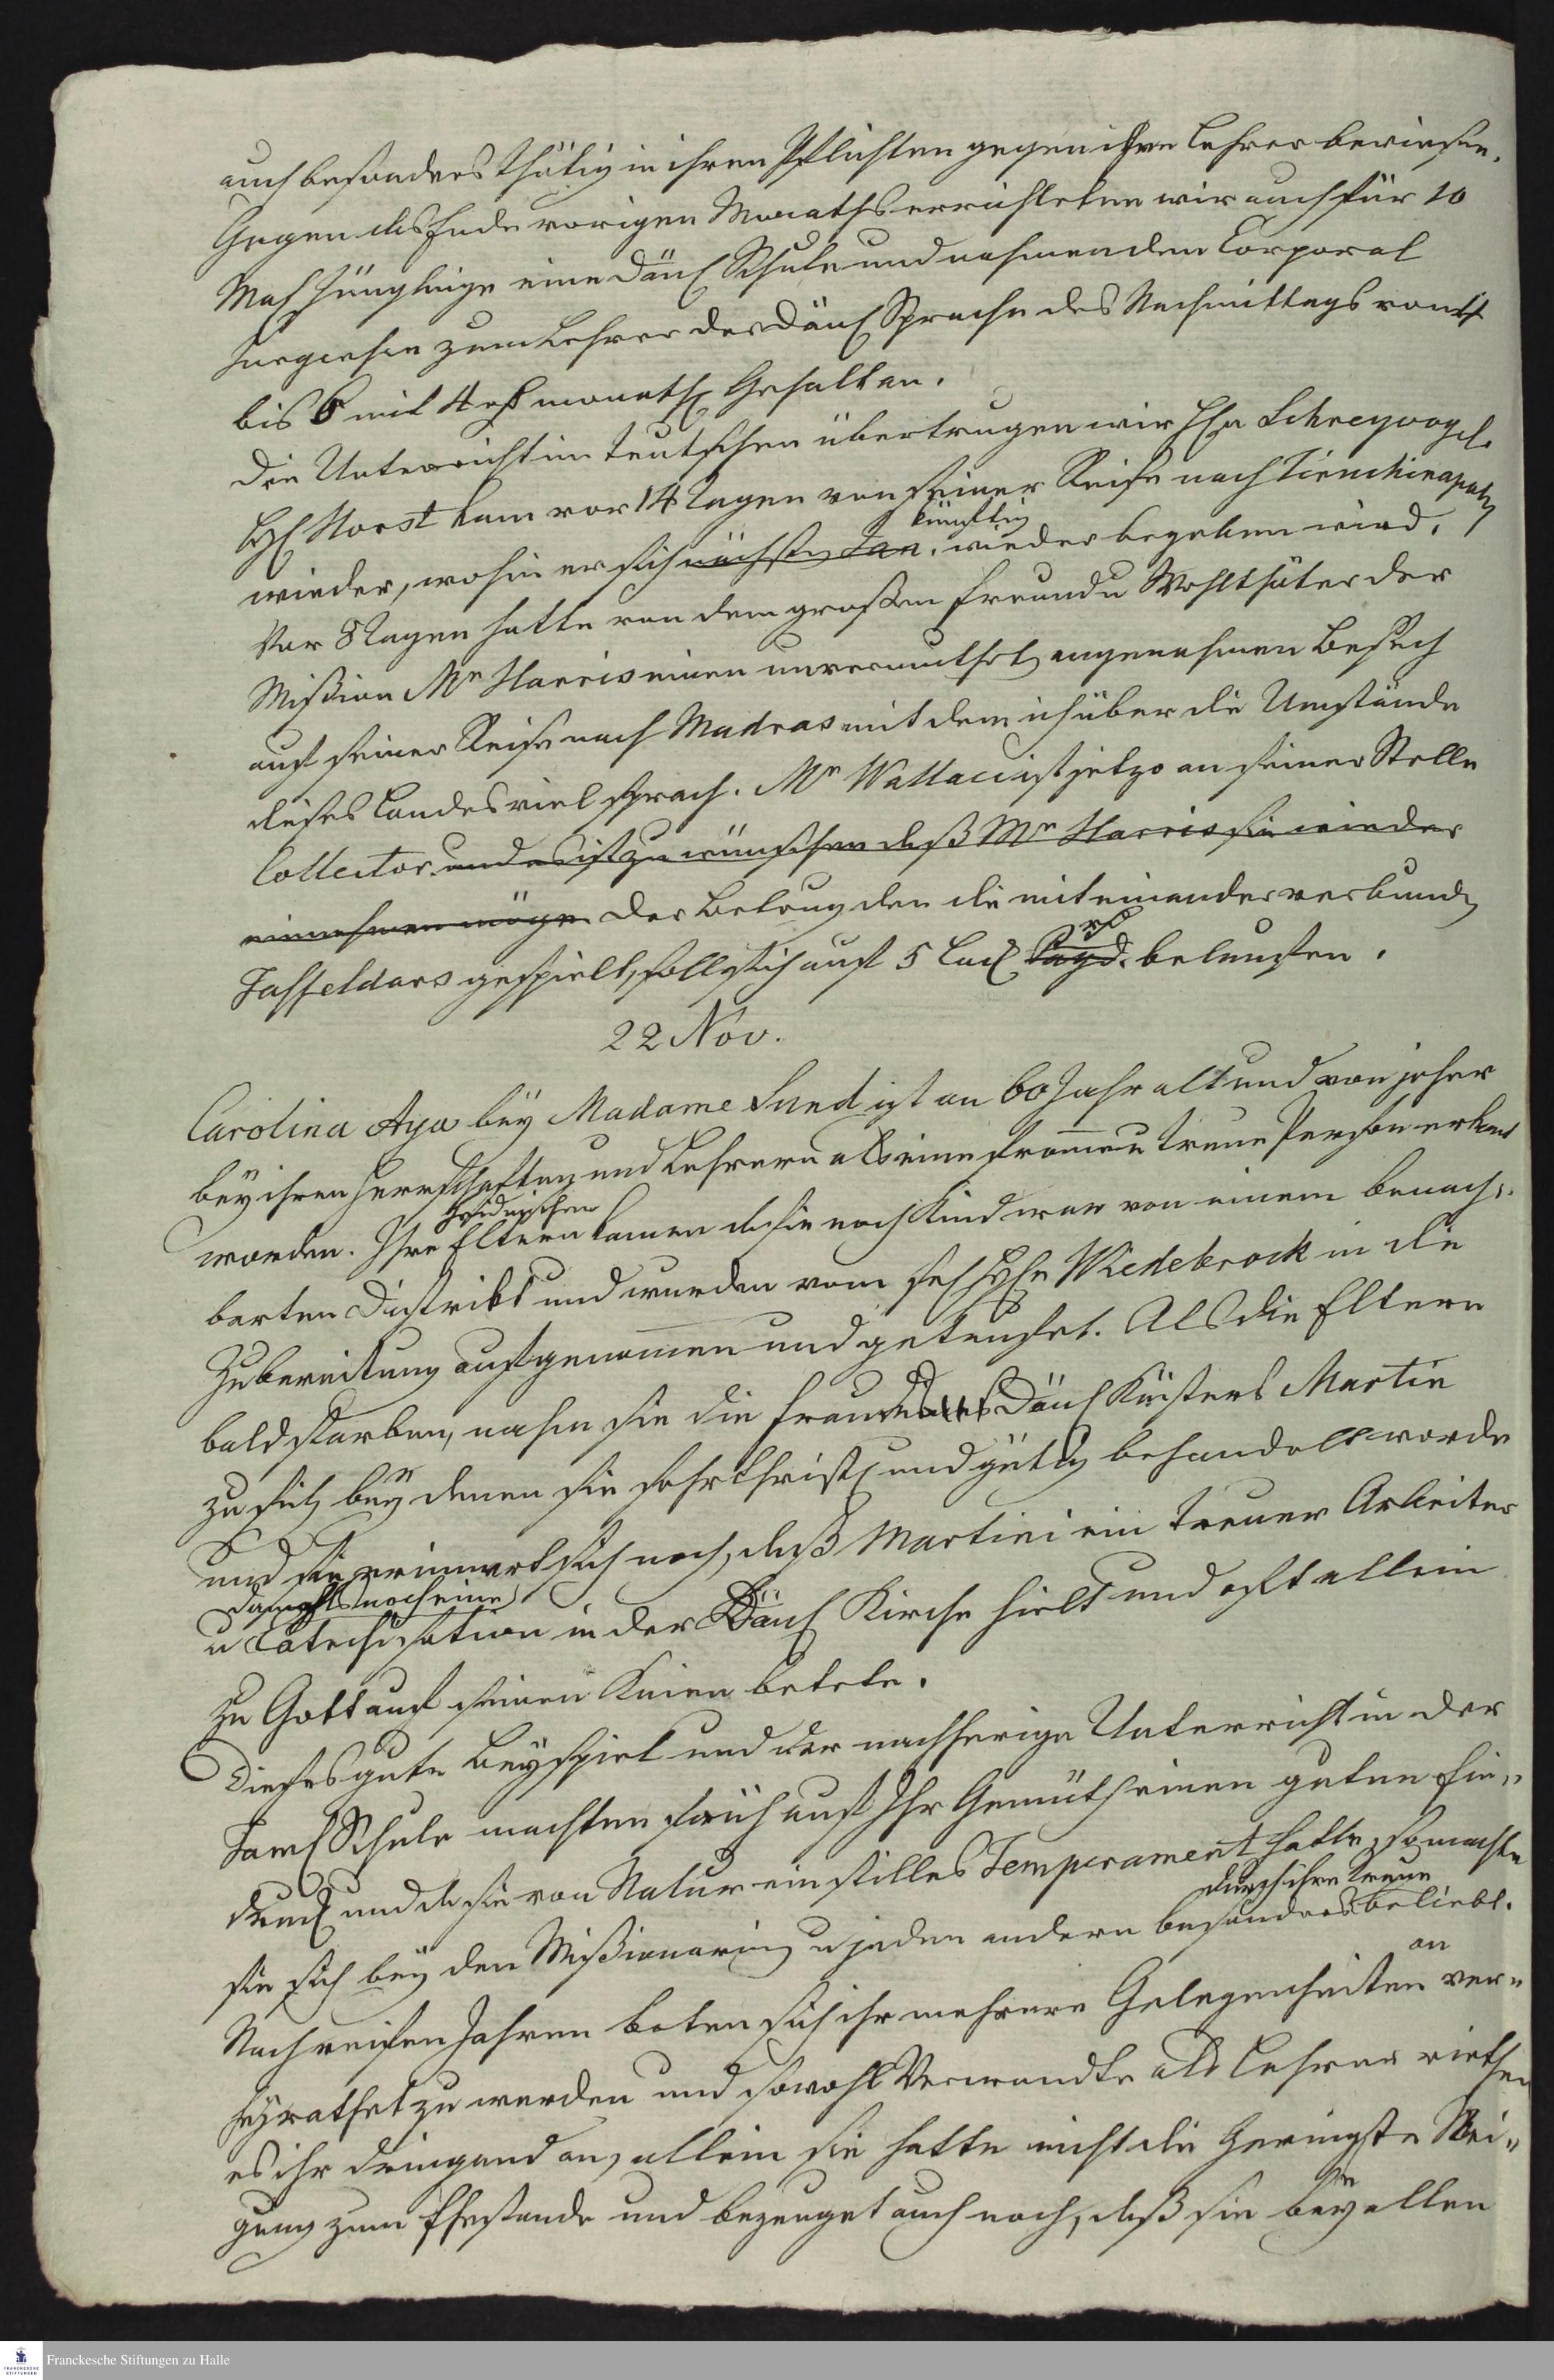 auch besonders thätig in ihren Pflichten gegen ihre Lehrer beweisen.
Gegen das Ende vorigen Monaths errichteten wir auch für 10
Mal Jünglinge eine Dän Schule und nahmen den Corporal
Jurgensen zum Lehrer der Dän Sprache des Nachmittags von 4
bis 6 mit 4 rh monatl Gehalt an.
Die Unterricht im Teutschen übertrugen wir HEn Schreyvogel.
HE Horst kam vor 14 Tagen von seiner Reise nach Tirutschinapaly
künftig
wieder, wohin er sich nächsten Jan. wieder begeben wird.
Vor 8 Tagen hatte von dem großen Freunde u Wohlthäter der
Mißion Mr Harris einen unvermutheten angenehmen Besuch
auf seiner Reise nach Madras mit dem ich über die Umstände
dieses Landes viel sprach. Mr Wallace ist jetzo an seiner Stelle
Collector und es ist zu wünschen daß Mr Harris sie wieder
einnehmen möge. Der Betrug den die mit einander verbunden
rh
Tasseldars gespielt, soll sich auf 5 Lack Pagd. belaufen.
22 Nov.
Carolina Aya bey Madame Lund ist an 60 Jahr alt und von jeher
bey ihren Herrschaften und Lehrern als eine fromme u treue Person erkant
heidnischen
worden. Ihre Eltern kamen da sie noch Kind war von einem benach-
barten Distrikt und wurden vom sel HEn Wiedebrock in die
Zubereitung aufgenommen und getauft. Als die Eltern
bald starben, nahm sie die Frau des Dän Küsters Martin
zu sich bey denen sie sehr christl und gütig behandelt worde
und sie erinnert sich noch, daß Martini ein treuer Arbeiter
damahls noch eine
u Catechisation in der Dän Kirche hielt und oft allein
zu Gott auf seinen Knien betete.
Dieses gute Beyspiel und der nachherige Unterricht in der
Taml Schule machten früh auf Ihr Gemüth einen guten Ein-
druck und da sie von Natur ein stilles Temperament hatte, so machte
durch ihre Treue
sie sich bey den Mißionarien u jeden andern besonders beliebt.
an
Nach reifen Jahren boten sich ihr mehrere Gelegenheiten ver-
heyrathet zu werden und sowohl Verwandte als Lehrer riethen
es ihr dringend an, allein sie hatte nicht die Geringste Nei-
gung zum Ehestande und bezeuget auch noch, daß sie bey allen
Franckesche Stiftungen zu Halle